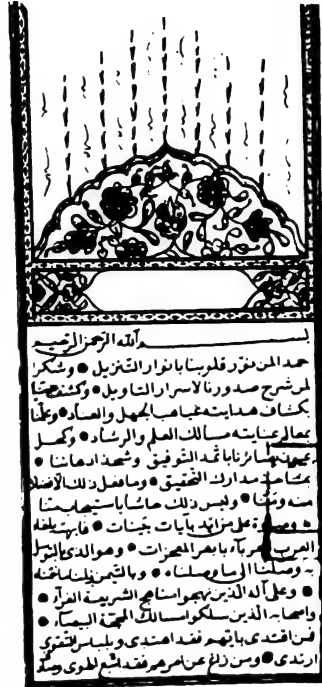 بسم الله الرحمن الرحيم
حمدا لمن نور قلوبنا بانوار التنزيل وشكرا
لمن شرح صدورنا لاسرار التاويل وكشف عنا
بكشاف هدايته غياهب الجهل والعناد وعلمنا
بمعالم عنايته مسالك العلم والرشاد وكحل
بصائرنا باثمد التوفيق وشحذ اذهاننا
مدارك التحقيق وما فعل ذلك الا فضلا
منه ومنا وليس ذلك حاشا باستيجاب منا
وصلاة على من ايد بآيات بينات فابهت بلغاء
العرب بابهر المعجزات وهو الذي
وصلنا الى ما وصلناه وبالتيمن
وعلى آله الذين نهجوا مناهج الشريعة الغراء
واصحابه الذين سلكوا مسالك المحجة البيضاء
فمن اقتدى بايهم فقد اهتدى وبلباس التقوى
ارتدى ومن زاغ عن امرهم فقد اتبع الهوى